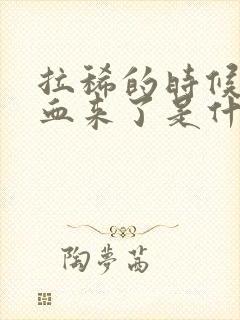 拉稀的時候
血来了是什
陶夢茜